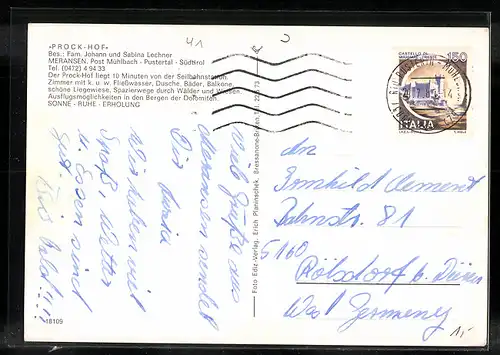 «PROCK-HOF»
Bes.: Fam. Johann und Sabina Lechner
MERANSEN, Post Mühlbach - Pustertal - Südtirol
Tel. (0472) 4 94 33
Der Prock-Hof liegt 10 Minuten von der Seilbahnstation.
Zimmer mit k. u. w. Fließwasser, Dusche, Bäder, Balkone,
schöne Liegewiese, Spazierwege durch Wälder und Wiesen.
Ausflugsmöglichkeiten in den Bergen der Dolomiten.
SONNE - RUHE - ERHOLUNG
41
Viele Grüße aus
Meransen sendet
Dir
Wir haben viel
Spaß, Wetter
u. Essen sind
gut.
Bis bald!!!
18109
Foto Ediz.-Verlag. Erich Planinschek. Bressanone-Brixen
CASTELLO DI
150
ITALIA
An
Irmhild Clement
Bahnstr. 81
5160
Rölsdorf b. Düren
West Germany
1,-